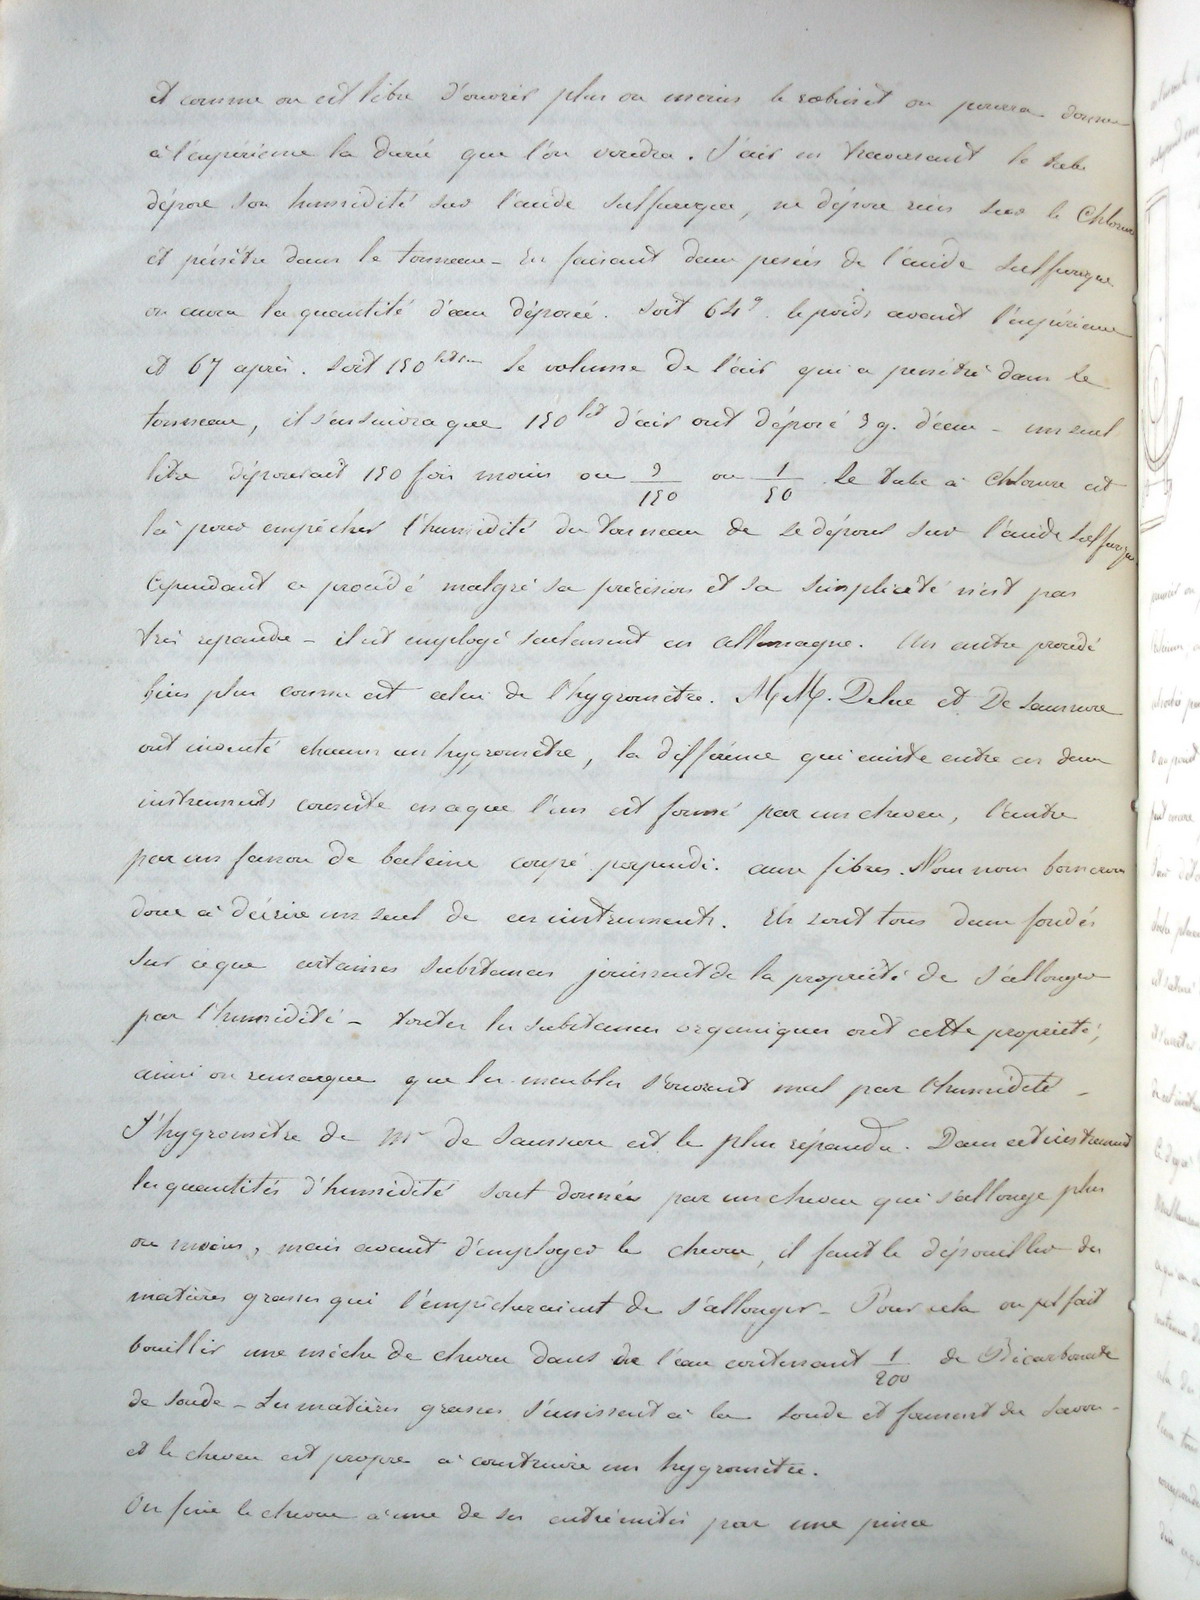 et comme on est libre d'ouvrir plus ou moins le robinet on pourra donner
à l'expérience la durée que l'on voudra. L'air en traversant le tube
dépose son humidité sur l'acide sulfurique, ne dépose rien sur le Chlorure
et pénètre dans le tonneau - En faisant deux pesées de l'acide sulfurique
on aura la quantité d'eau déposée. Soit 64g. le poids avant l'expérience
et 67 après. Soit 150 litres le volume de l'air qui a pénétré dans le
tonneau, il s'ensuivra que 150 lit d'air ont déposé 3 g. d'eau - un seul
litre déposerait 150 fois moins ou 3/150 ou 1/50 Le tube à Chlorure est
là pour empêcher l'humidité du tonneau de se déposer sur l'acide sulfurique
Cependant ce procédé malgré sa précision et sa simplicité n'est pas
très repandu - il est employé seulement en Allemagne. Un autre procédé
bien plus connu est celui de l'hygromètre. MM. Deluc et De Saussure
ont inventé chacun un hygromètre, la différence qui existe entre ces deux
instruments consiste en ce que l'un est formé par un cheveu, l'autre
par un fanon de baleine coupé perpendi. aux fibres. Nous nous bornerons
donc à décrire un seul de ces instruments. Ils sont tous deux fondés
sur ce que certaines substances jouissent de la propriété de s'allonger
par l'humidité - toutes les substances organiques ont cette propriété,
ainsi on remarque que les meubles s'ouvrent mal par l'humidité -
L'hygromètre de Mr de Saussure est le plus répandu. Dans cet instrument
les quantités d'humidité sont données par un cheveu qui s'allonge plus
ou moins, mais avant d'employer le cheveu, il faut le dépouiller des
matières grasses qui l'empêcheraient de s'allonger - Pour cela on fait
bouillir une mèche de cheveu dans de l'eau contenant 1/200 de Bicarbonate
de soude - Les matières grasses s'unissent à la soude et forment du savon -
et le cheveu est propre à construire un hygromètre.
On fixe le cheveu à une de ses extrémités par une pince